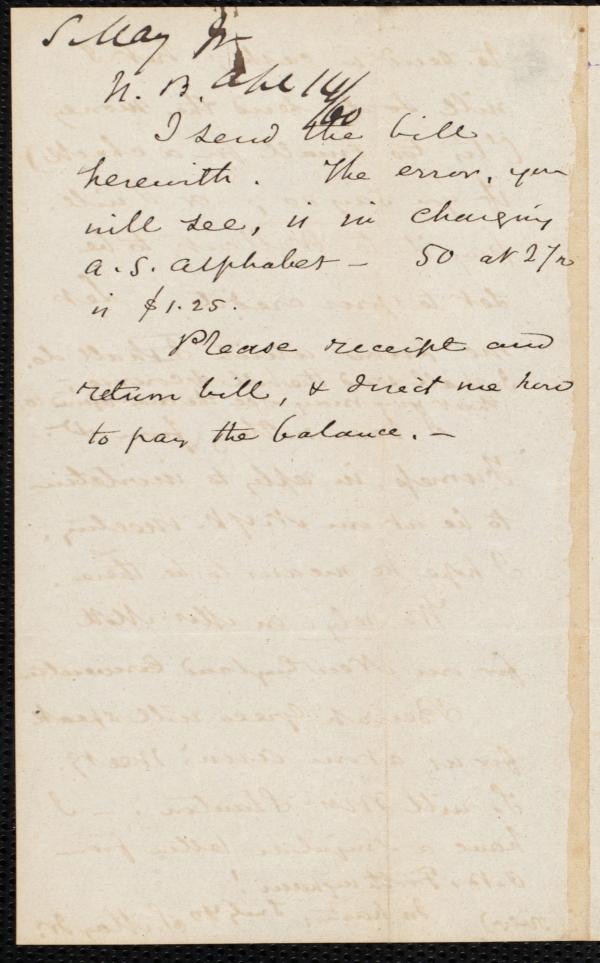 S. May Jr
N. B. Apl 14/60
I send the bill
herewith. The error, you
will see, is in charging
A. S. Alphabet — 50 at 2½
is $1.25.
Please receipt and
return bill, & direct me how
to pay the balance. —